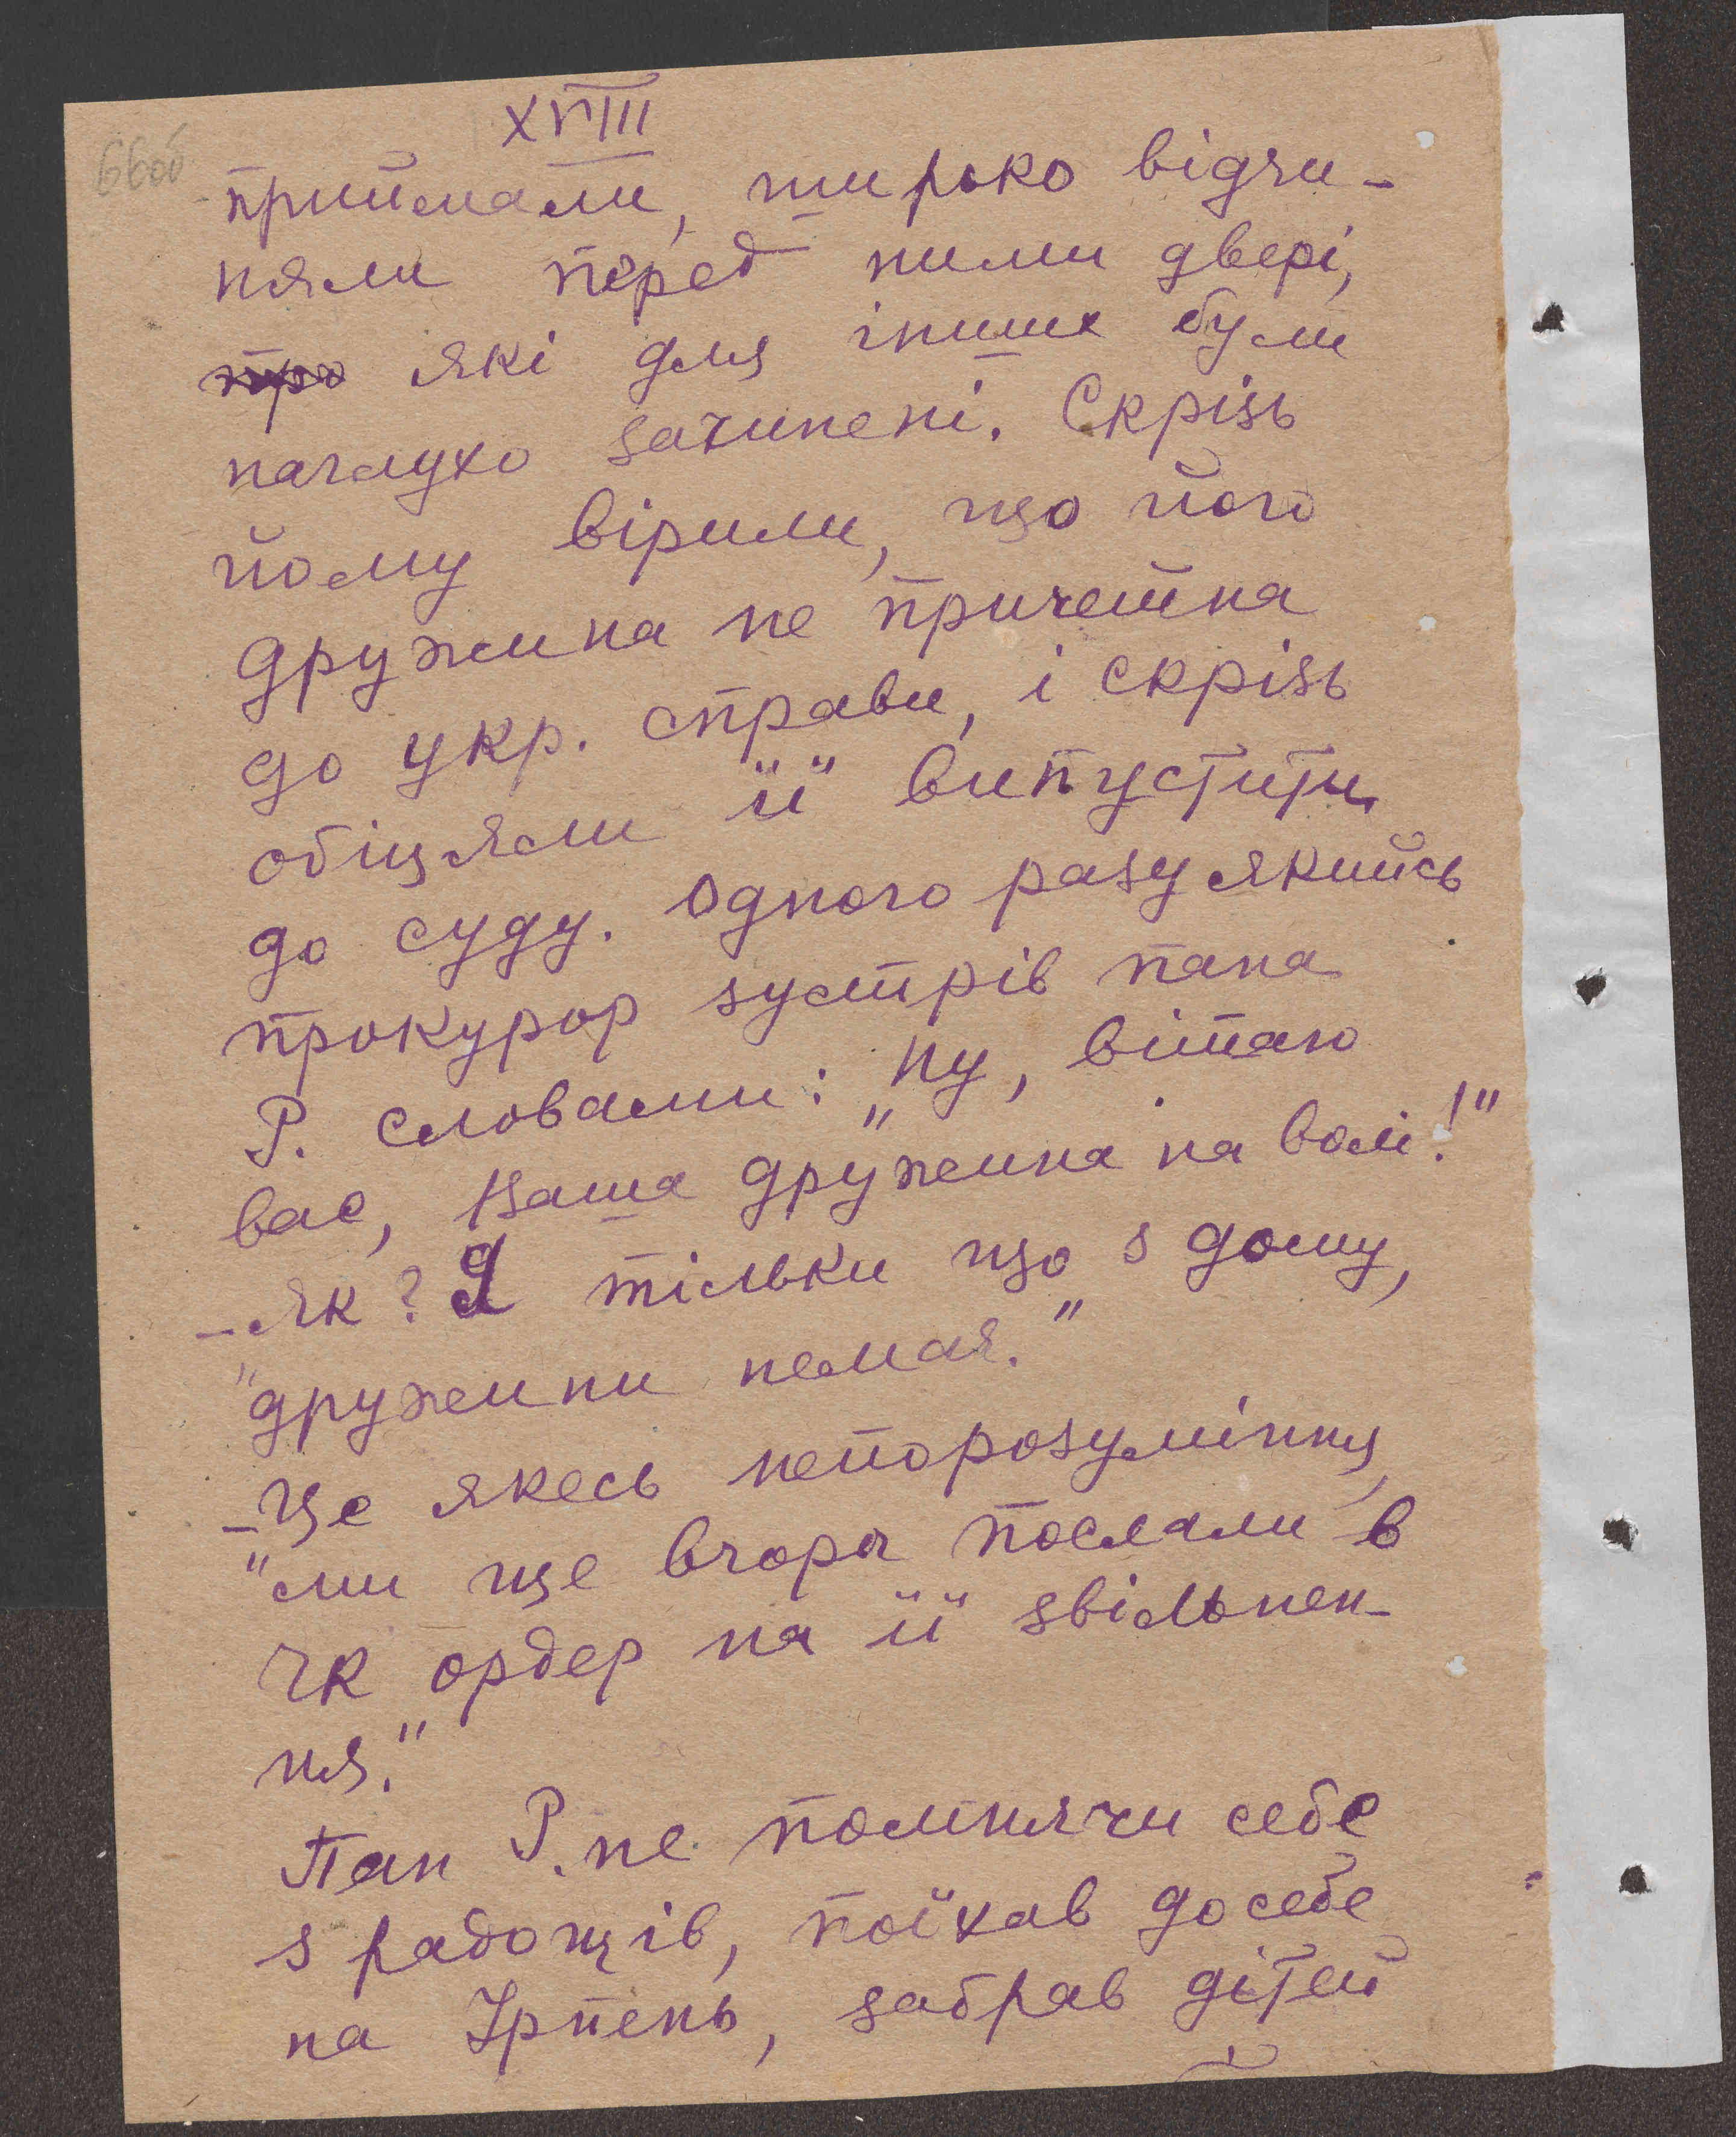 XVIII
66об
приймали, широко відчи-
няли перед ними двері,
про які для інших були
наглухо зачинені. Скрізь
йому вірили, що його
дружина не причетна
до укр. справи, і скрізь
обіцяли її випустити
до суду. Одного разу якийсь
прокурор зустрів пана
Р. словами: „Ну, вітаю
вас, Ваша дружина на волі!"
– Як? Я тільки що з дому,
"дружини немає."
– Це якесь непорозуміння,
"ми ще вчора послали в
ЧК ордер на її звільнен-
ня."
Пан Р. не помнячи себе
з радощів, поїхав до себе
на Ірпень, забрав дітей